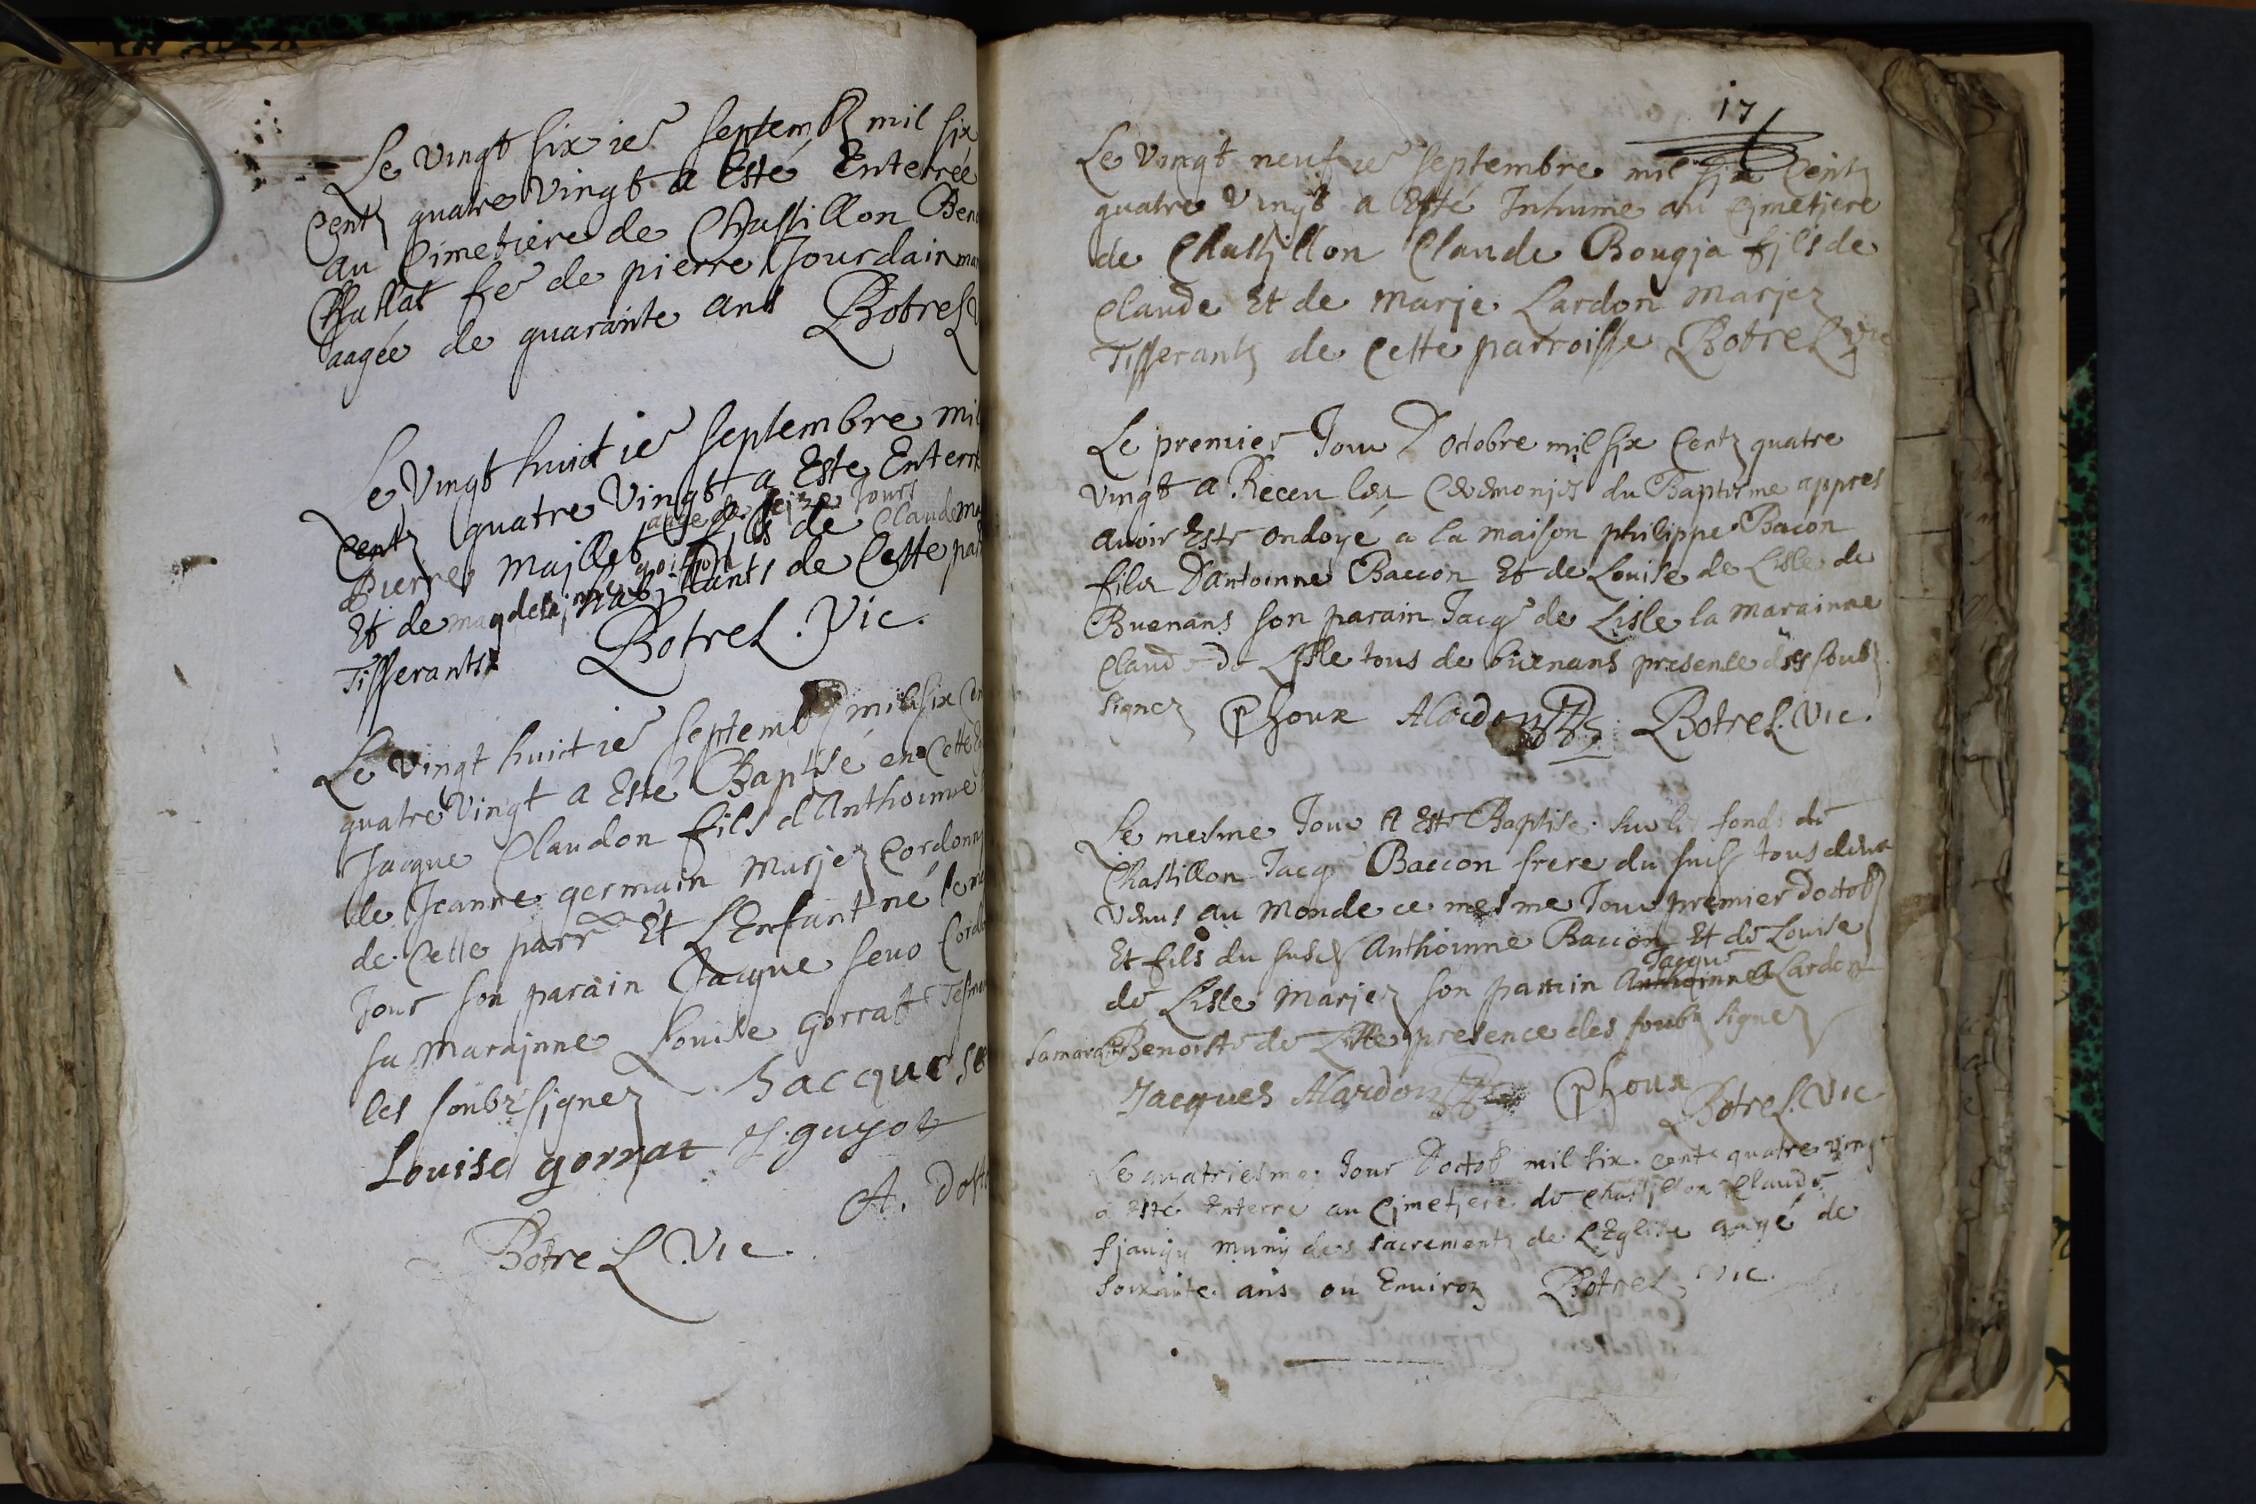 Le vingt six ie septemb mil six
Centz quatre Vingt a Esté Enterrée
au Cimetiere de Chastillon Ben
Challat fe de pierre Jourdain
aagée de quarante ans Botrel V
Le Vingt huict ie septembre mil
Centz quatre Vingt a Este Enterr
aagé de seize Jours
Pierre Majllet fils de Claude
Et de magdelajne habitants de Cette par
Tisserants Botrel. Vic.
Le vingt huict ie septemb mil six Cen
quatre Vingt a Esté Baptisé en Cette
Jacque Claudon fils d'Anthoinne
de Jeanne germain Marjez Cordonn
de Cette parr Et L'Enfant né le
Jour son parain Jacque seuo Cord
sa Marajnne Louise gorrat
les soubzsignez Jacque se
Louise gorrat J. guyot
A. Dost
Botrel. Vic.
17
Le Vingt neuf ie septembre mil six Centz
quatre Vingt a Esté Inhume au Cjmetjere
de Chastjllon Claude Bougja fjls de
Claude Et de Marje Lardon Marjez
Tisserantz de Cette parroisse Botrel Vic
Le premier Jour D'octobre mil six Centz quatre
vingt a Receu les Ceremonjes du Baptisme appres
auoir Este ondoyé a la maison philippe Bacon
fils D'antoinne Baccon Et de Louise de Lisle de
Buenans son parain Jacq de Lisle la marainne
Claude de Lisle tous de buenans presence des soub
signez Phoux ALardon Botrel. Vic.
Le mesme Jour A Este Baptise sur les fonds de
Chastillon Jacq Baccon frere du susd tous deux
venus au Monde ce mesme Jour premier Doctob
Et fils du susd Anthoinne Baccon Et de Louise
Jacque
de Lisle Marjez son parain Anthoinne Lardon
sa mara Benoiste de Lisle presence des soubz signez
Jacques ALardon Phoux Botrel. Vic
Le quatriesme Jour Doctob mil six cents quatre vingt
a Esté Enterre au Cjmetjere de Chastjllon Claude
fjaugy muny des sacrementz de L'Eglise aagé de
soixante ans ou Environ Botrel Vic.